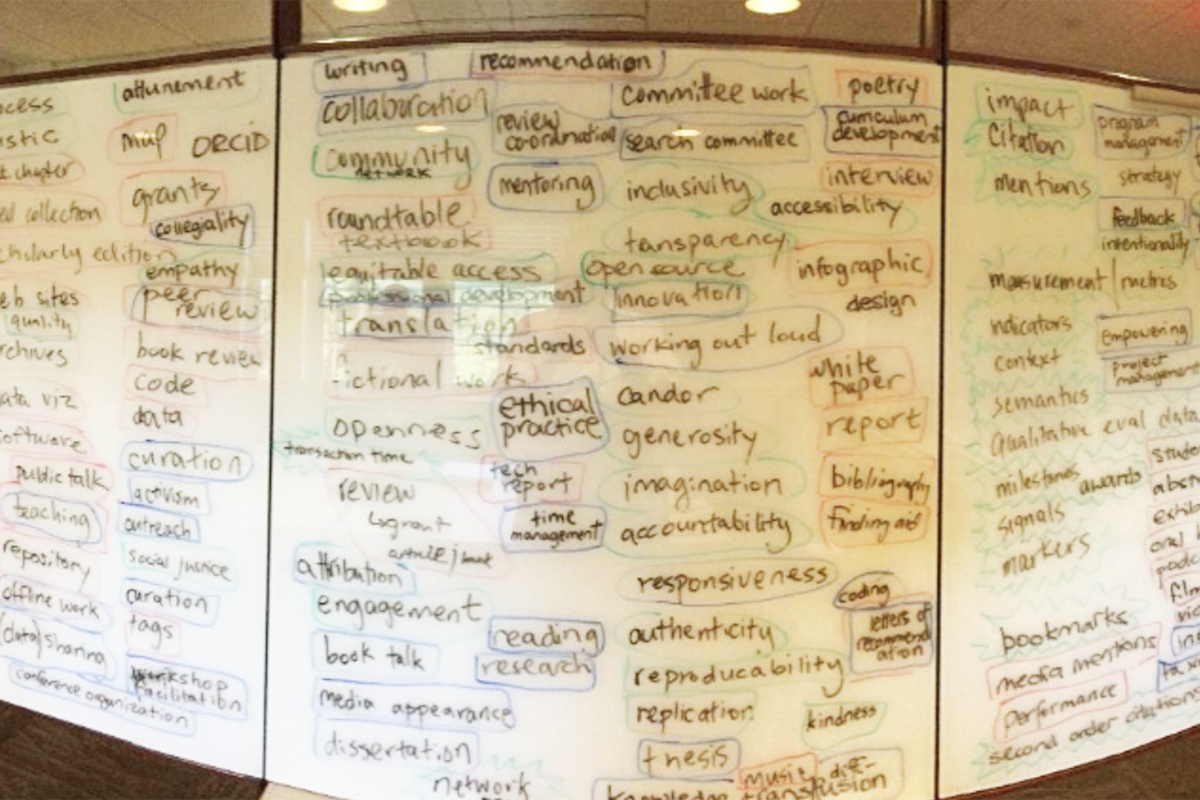 attunement
ORCID
grants
collegiality
empathy
peer
review
book review
code
data
curation
activism
outreach
social justice
curation
tags
workshop
facilitation
quality
public talk
teaching
repository
offline work
(data) sharing
conference organization
writing
collaboration
community
network
roundtable
textbook
equitable access
professional development
translation
standards
fictional work
openness
transaction time
review
grant
article/book
attribution
engagement
book talk
media appearance
dissertation
network
recommendation
review
co-ordination
mentoring
ethical
practice
tech
report
time
management
reading
research
committee work
search committee
inclusivity
accessibility
transparency
open source
innovation
working out loud
candor
generosity
imagination
accountability
responsiveness
authenticity
reproducability
replication
thesis
music
poetry
curriculum
development
interview
infographic
design
white
paper
report
bibliography
finding aid
coding
letters of
recommend
ation
kindness
impact
citation
mentions
measurement/metrics
indicators
context
semantics
qualitative eval data
milestones
awards
signals
markers
bookmarks
media mentions
performance
second order citations
program
management
strategy
feedback
intentionality
empowering
project
management